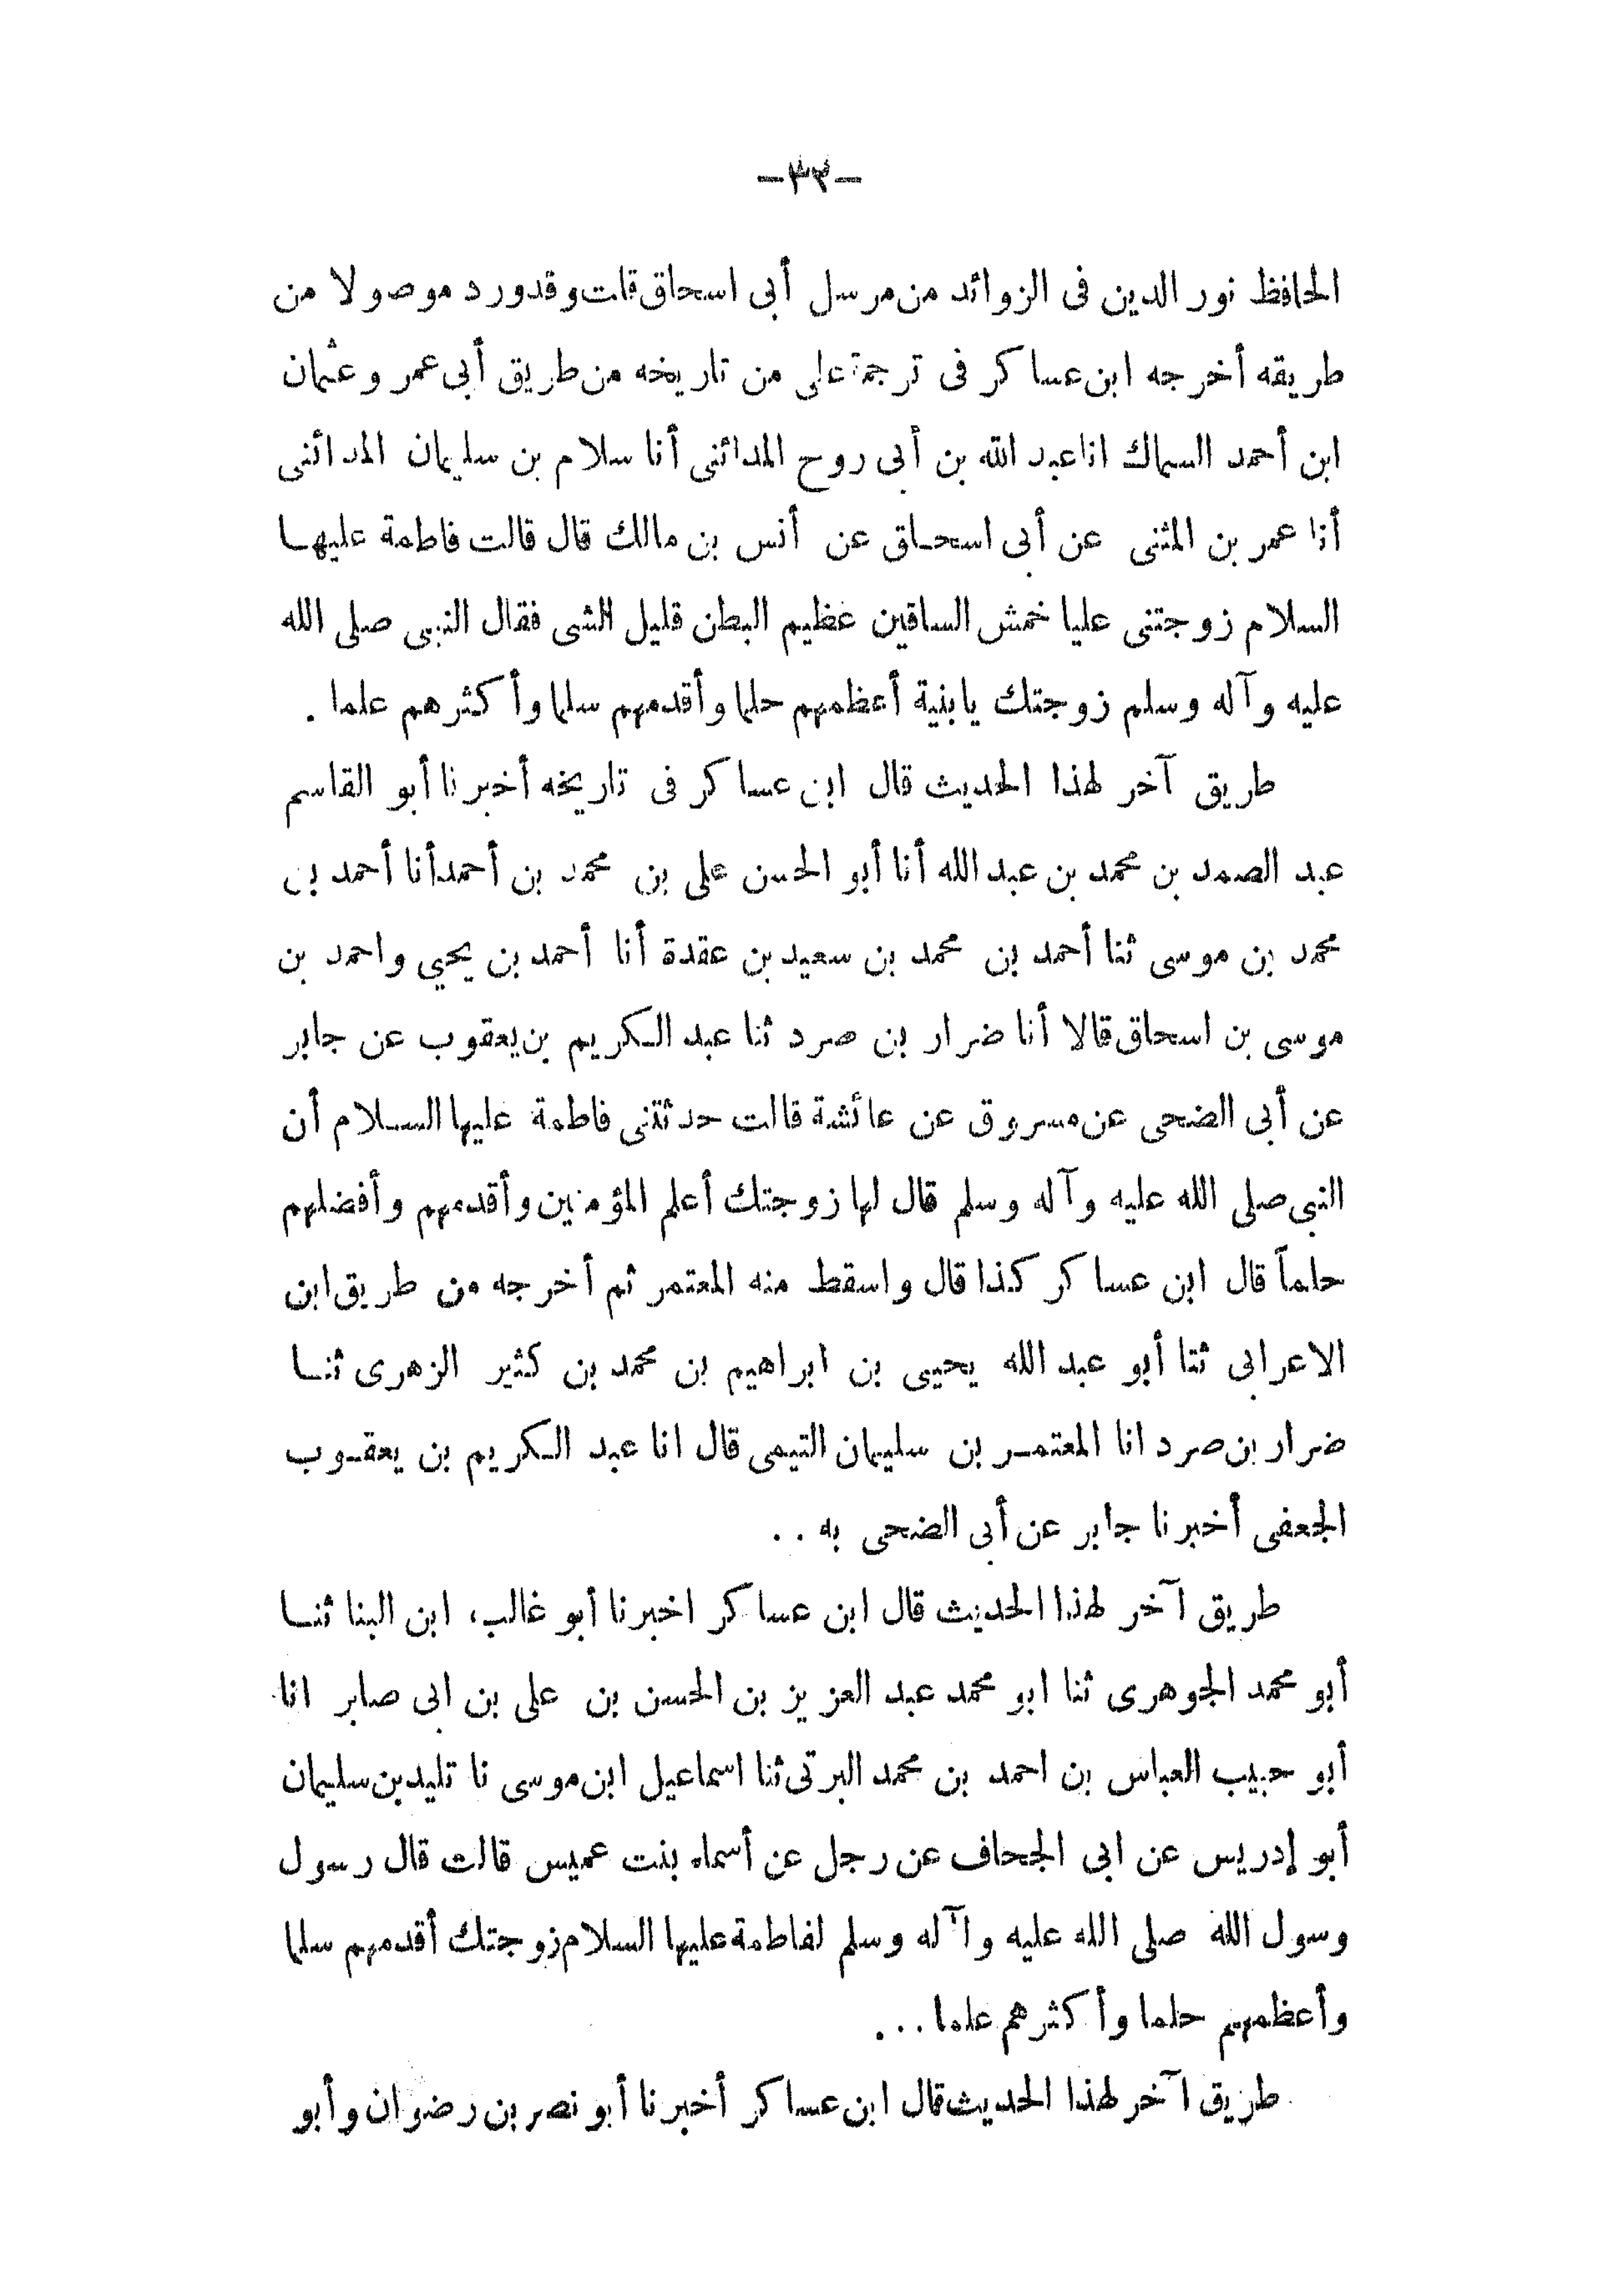 -٣٣-
الحافظ نور الدين فى الزوائد من مرسل أبى اسحاق قلت وقد ورد موصولا من
طريقه أخرجه ابن عساكر فى ترجمة على من تاريخه من طريق أبى عمر وعثمان
ابن أحمد السماك انا عبد الله بن أبى روح المدائنى أنا سلام بن سليمان المدائنى
أنا عمر بن المثنى عن أبى اسحاق عن أنس بن مالك قال قالت فاطمة عليها
السلام زوجتنى عليا خمش الساقين عظيم البطن قليل الشى فقال النبى صلى الله
عليه وآله وسلم زوجتك يابنية أعظمهم حلما وأقدمهم سلما وأكثرهم علما .
طريق آخر لهذا الحديث قال ابن عساكر فى تاريخه أخبرنا أبو القاسم
عبد الصمد بن محمد بن عبد الله أنا أبو الحسن على بن محمد بن أحمد أنا أحمد بن
محمد بن موسى ثنا أحمد بن محمد بن سعيد بن عقدة أنا أحمد بن يحيي واحمد بن
موسى بن اسحاق قالا أنا ضرار بن صرد ثنا عبد الكريم بن يعقوب عن جابر
عن أبى الضحى عن مسروق عن عائشة قالت حدثتنى فاطمة عليها السلام أن
النبى صلى الله عليه وآله وسلم قال لها زوجتك أعلم المؤمنين وأقدمهم وأفضلهم
حلماً قال ابن عساكر كذا قال واسقط منه المعتمر ثم أخرجه من طريق ابن
الاعرابى ثنا أبو عبد الله يحيى بن ابراهيم بن محمد بن كثير الزهرى ثنا
ضرار بن صرد انا المعتمر بن سليمان التيمى قال انا عبد الكريم بن يعقوب
الجعفى أخبرنا جابر عن أبى الضحى به . .
طريق آخر لهذا الحديث قال ابن عساكر اخبرنا أبو غالب، ابن البنا ثنا
أبو محمد الجوهرى ثنا ابو محمد عبد العزيز بن الحسن بن على بن ابى صابر انا
أبو حبيب العباس بن احمد بن محمد البرتى ثنا اسماعيل ابن موسى نا تليد بن سليمان
أبو إدريس عن ابى الجحاف عن رجل عن أسماء بنت عميس قالت قال رسول
وسول الله صلى الله عليه وآله وسلم لفاطمة عليها السلام زوجتك أقدمهم سلما
وأعظمهم حلما وأكثرهم علما . . .
طريق آخر لهذا الحديث قال ابن عساكر أخبرنا أبو نصر بن رضوان وأبو